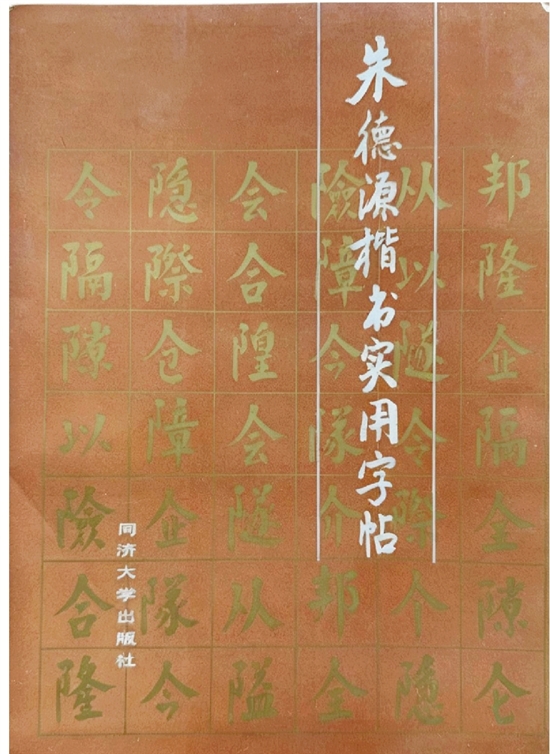 朱德源楷书实用字帖
同济大学出版社
邦隆企隔全隙仑
从以隧令際个隐
險障今隊介邦全
会合隍会隧从隘
隐際仓障企隊今
令隔隙以險合隆